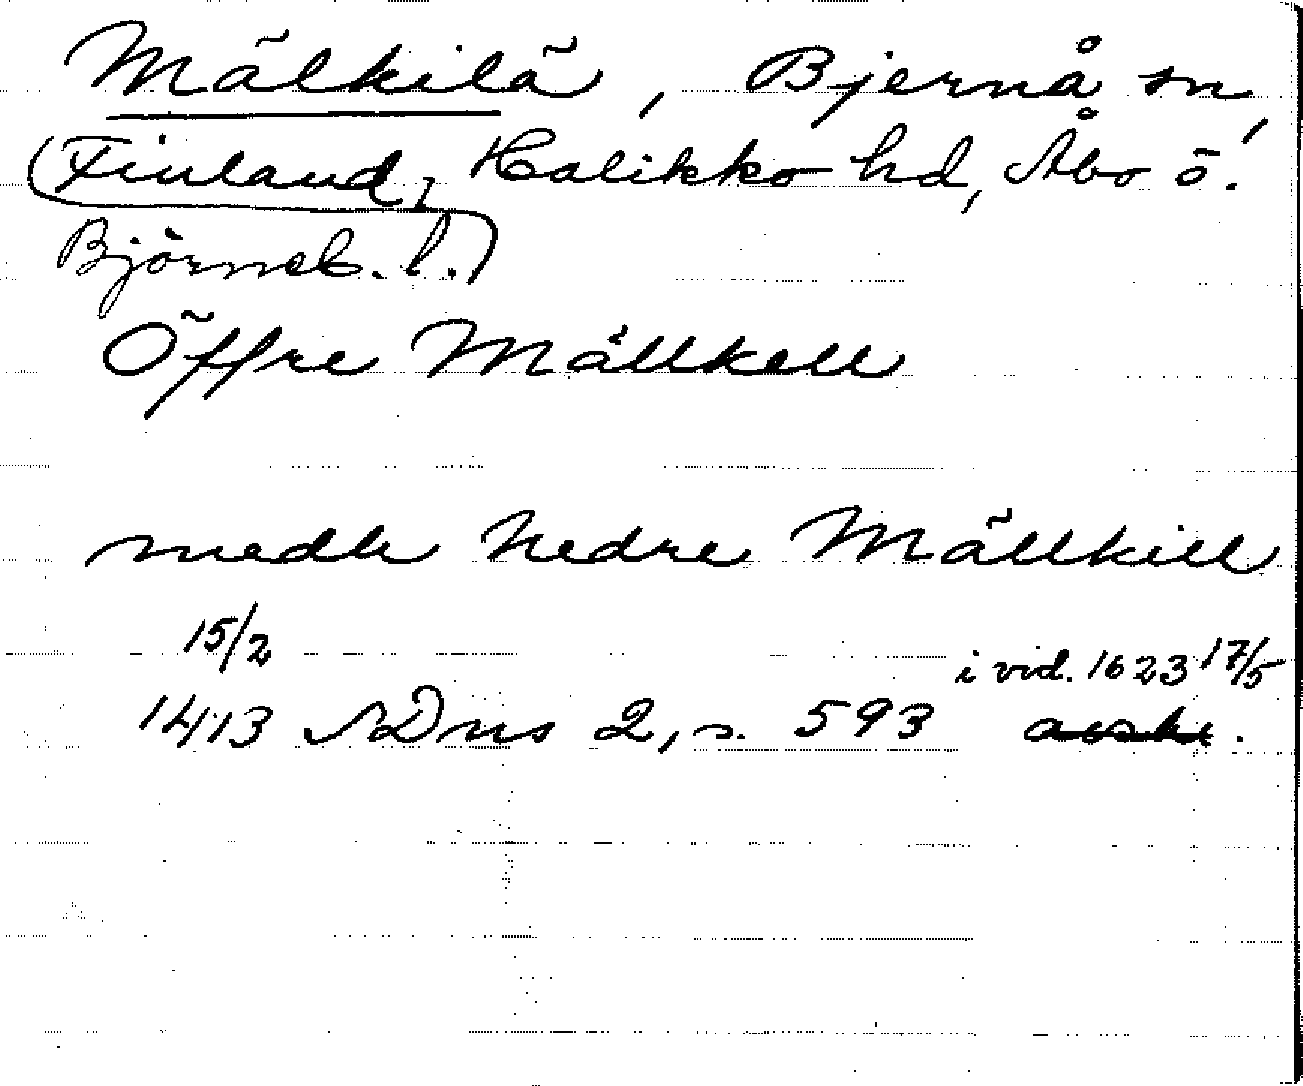 Mälkilä, Bjernå sn,
(Finland, Halikko hd, Åbo o.
Björneb. l.)
Öffre Mällkell
medh Nedre Mällkill
15/2
i vid. 1623 17/5
1413 SDns 2, s. 593